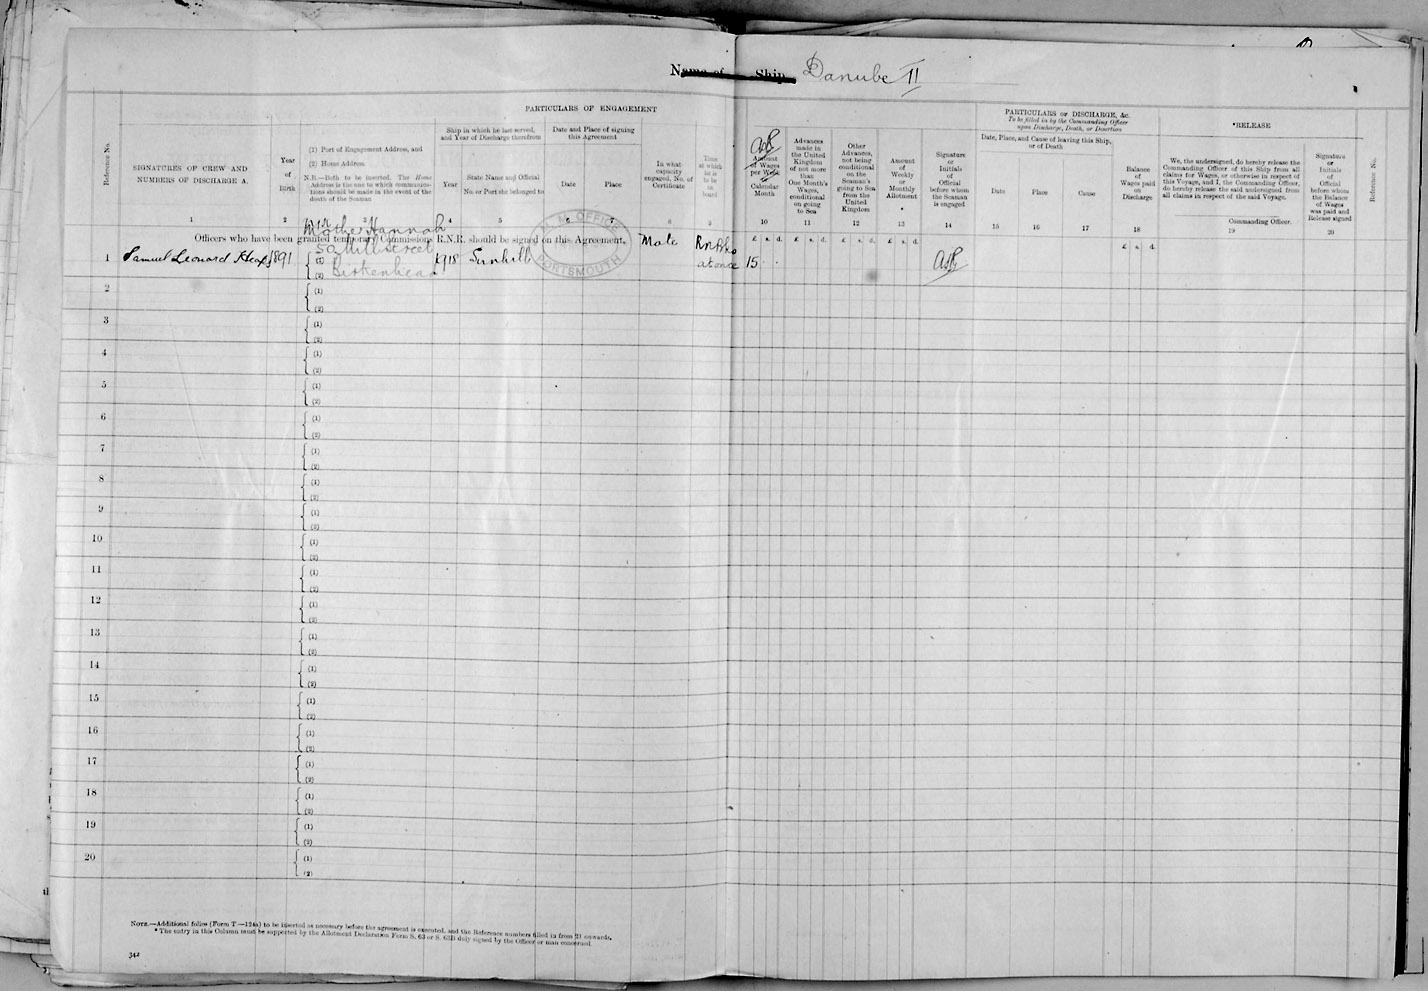 Name of Ship Danube II
PARTICULARS OF ENGAGEMENT
PARTICULARS OF DISCHARGE, &c.
To be filled in by the Commanding Officer
upon Discharge, Death, or Desertion
*RELEASE
Reference No.
SIGNATURES OF CREW AND
NUMBERS OF DISCHARGE A.
Year
of
Birth
(1) Port of Engagement Address, and
(2) Home Address
N.B.—Both to be inserted. The Home
Address is the one to which communica-
tions should be made in the event of the
death of the Seaman
Ship in which he last served,
and Year of Discharge therefrom
Year
State Name and Official
No. or Port she belonged to
Date and Place of signing
this Agreement
Date
Place
In what
capacity
engaged, No. of
Certificate
Time
at which
he is
to be
on
board
Amount
of Wages
per Week
or
Calendar
Month
Advances
made in
the United
Kingdom
of not more
than
One Month's
Wages,
conditional
on going
to Sea
Other
Advances,
not being
conditional
on the
Seaman's
going to Sea
from the
United
Kingdom
Amount
of
Weekly
or
Monthly
Allotment
*
Signature
or
Initials
of
Official
before whom
the Seaman
is engaged
Date, Place, and Cause of leaving this Ship,
or of Death
Date
Place
Cause
Balance
of
Wages paid
on
Discharge
We, the undersigned, do hereby release the
Commanding Officer of this Ship from all
claims for Wages, or otherwise in respect of
this Voyage, and I, the Commanding Officer,
do hereby release the said undersigned from
all claims in respect of the said Voyage.
Commanding Officer.
Signature
or
Initials
of
Official
before whom
the Balance
of Wages
was paid and
Release signed
Reference No.
1 2 3 4 5 6 7 8 9 10 11 12 13 14 15 16 17 18 19 20
Mother Hannah
Officers who have been granted temporary Commissions R.N.R. should be signed on this Agreement.
£ s. d. £ s. d. £ s. d. £ s. d. £ s. d.
M. M. OFFICE
PORTSMOUTH
Mate
Mill Street
1 Samuel Leonard 1891 (1) 1918 Sunhill at once 15
(2) Birkenhead
2 (1)
(2)
3 (1)
(2)
4 (1)
(2)
5 (1)
(2)
6 (1)
(2)
7 (1)
(2)
8 (1)
(2)
9 (1)
(2)
10 (1)
(2)
11 (1)
(2)
12 (1)
(2)
13 (1)
(2)
14 (1)
(2)
15 (1)
(2)
16 (1)
(2)
17 (1)
(2)
18 (1)
(2)
19 (1)
(2)
20 (1)
(2)
NOTE.—Additional folios (Form T—124a) to be inserted as necessary before the agreement is executed, and the Reference numbers filled in from 21 onwards.
* The entry in this Column must be supported by the Allotment Declaration Form S. 63 or S. 63B duly signed by the Officer or man concerned.
342